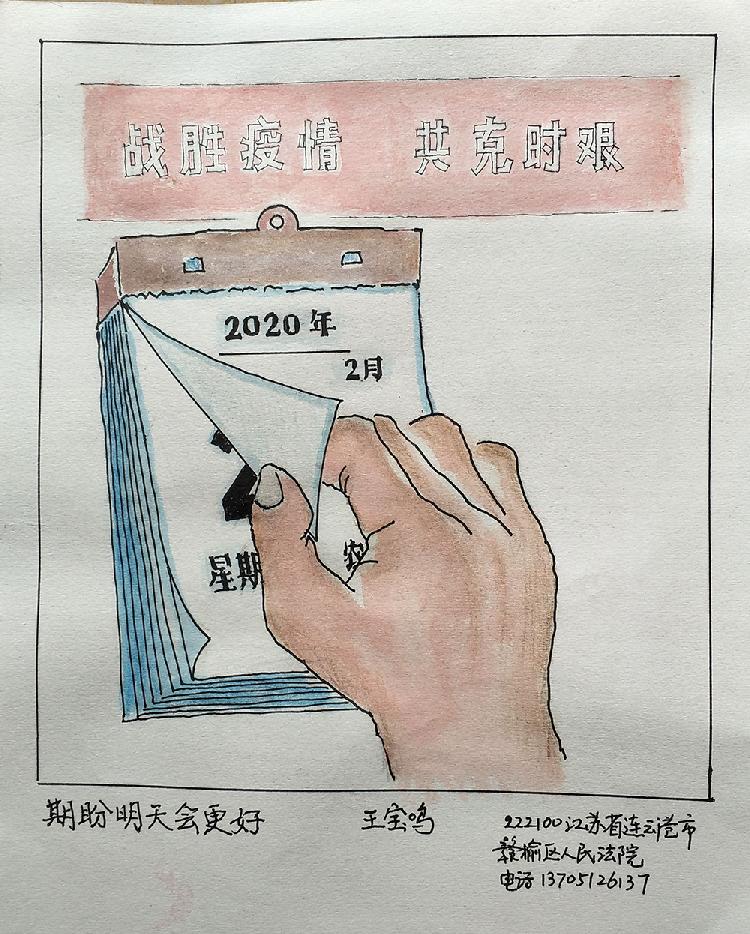 战胜疫情 共克时艰
2020年
2月
2
星期
农
期盼明天会更好
王宝鸣
222100江苏省连云港市
赣榆区人民法院
电话 13705126137